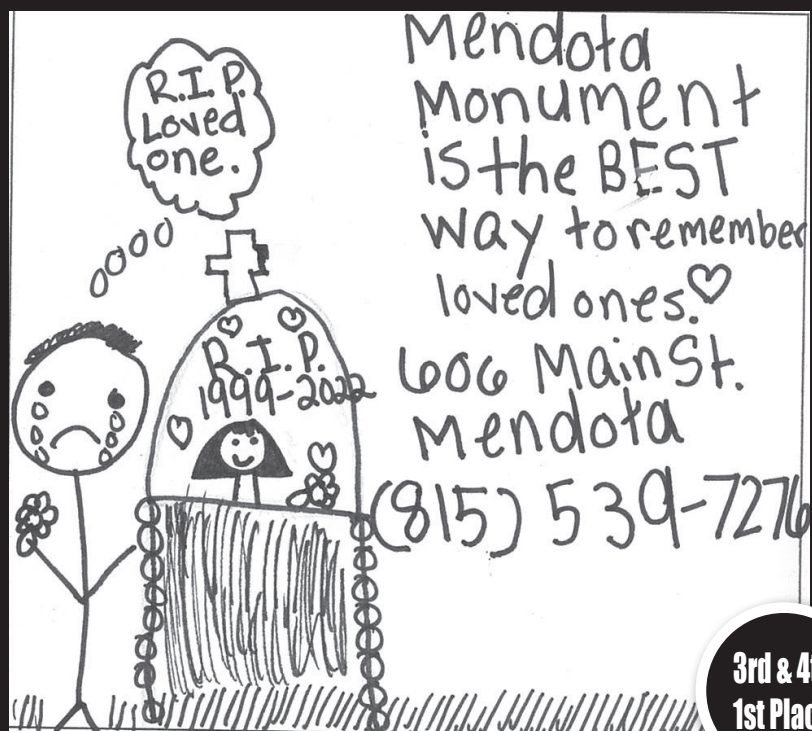 R.I.P.
Loved
one.
R.I.P.
1999-2022
Mendota
Monument
is the BEST
way to remember
loved ones.
606 Main St.
Mendota
(815) 539-7276
3rd & 4
1st Plac